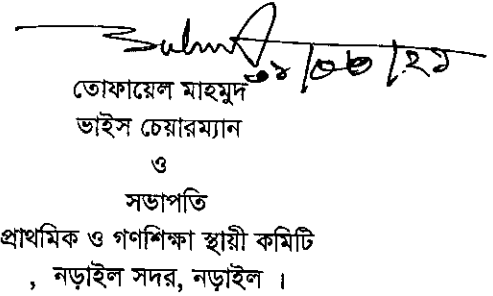 তোফায়েল মাহমুদ
ভাইস চেয়ারম্যান
ও
সভাপতি
প্রাথমিক ও গণশিক্ষা স্থায়ী কমিটি
, নড়াইল সদর, নড়াইল ।